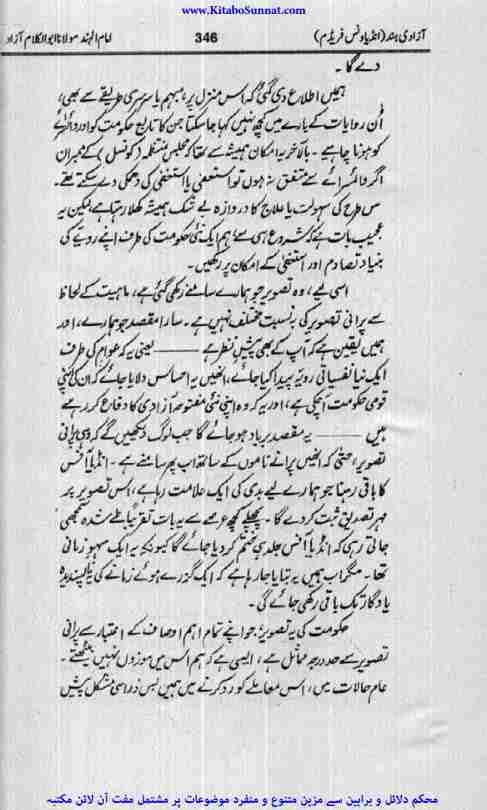 www.KitaboSunnat.com
آزادی ہند (انڈیا ونس فریڈم) 346 امام الہند مولانا ابوالکلام آزاد
دے گا۔
ہمیں اطلاع دی گئی کہ اس منزل پر، مبہم یا سرسری طریقے سے بھی،
اُن روایات کے بارے میں کچھ نہیں کہا جا سکتا جن کا تابع حکومت کو اور وائسرائے
کو ہونا چاہیے۔ بالآخر یہ امکان ہمیشہ سے تھا کہ مجلس منتظمہ (کونسل) کے ممبران
اگر وائسرائے سے متفق نہ ہوں تو استعفیٰ یا استعفیٰ کی دھمکی دے سکتے تھے۔
اس طرح کی سہولت یا علاج کا دروازہ بے شک ہمیشہ کھلا رہتا ہے لیکن یہ
عجیب بات ہے کہ شروع ہی سے ہم ایک نئی حکومت کی طرف اپنے رویے کی
بنیاد تصادم اور استعفیٰ کے امکان پر رکھیں۔
اسی لیے، وہ تصویر جو ہمارے سامنے رکھی گئی ہے، ماہیت کے لحاظ
سے پرانی تصویر کی بہ نسبت مختلف نہیں ہے۔ سارا مقصد جو ہمارے، اور
ہمیں یقین ہے کہ آپ کے بھی پیشِ نظر ہے ——— یعنی یہ کہ عوام کی طرف
ایک نیا نفسیاتی رویہ پیدا کیا جائے، انھیں یہ احساس دلایا جائے کہ ان کی اپنی
قومی حکومت آچکی ہے، اور یہ کہ وہ اپنی نئی مفتوحہ آزادی کا دفاع کر رہے
ہیں ——— یہ مقصد برباد ہو جائے گا جب لوگ دیکھیں گے کہ وہی پرانی
تصویر، حتیٰ کہ انھیں پرانے ناموں کے ساتھ اب پھر سامنے ہے۔ انڈیا آفس
کا باقی رہنا جو ہمارے لیے بدی کی ایک علامت رہا ہے، اس تصویر پر
مہرِ تصدیق ثبت کر دے گا۔ پچھلے کچھ عرصے سے یہ بات تقریباً طے شدہ سمجھی
جاتی رہی کہ انڈیا آفس جلد ہی ختم کر دیا جائے گا کیونکہ یہ ایک سہوِ زمانی
تھا۔ مگر اب ہمیں یہ بتایا جا رہا ہے کہ ایک گزرے ہوئے زمانے کی یہ ناپسندیدہ
یادگار تک باقی رکھی جائے گی۔
حکومت کی یہ تصویر، جو اپنے تمام اہم اوصاف کے اعتبار سے پرانی
تصویر سے حد درجہ مماثل ہے، ایسی ہے کہ ہم اس میں موزوں نہیں بیٹھتے۔
عام حالات میں، اس معاملے کو رد کرنے میں ہمیں بس ذرا سی مشکل پیش
محکم دلائل و براہین سے مزین متنوع و منفرد موضوعات پر مشتمل مفت آن لائن مکتبہ